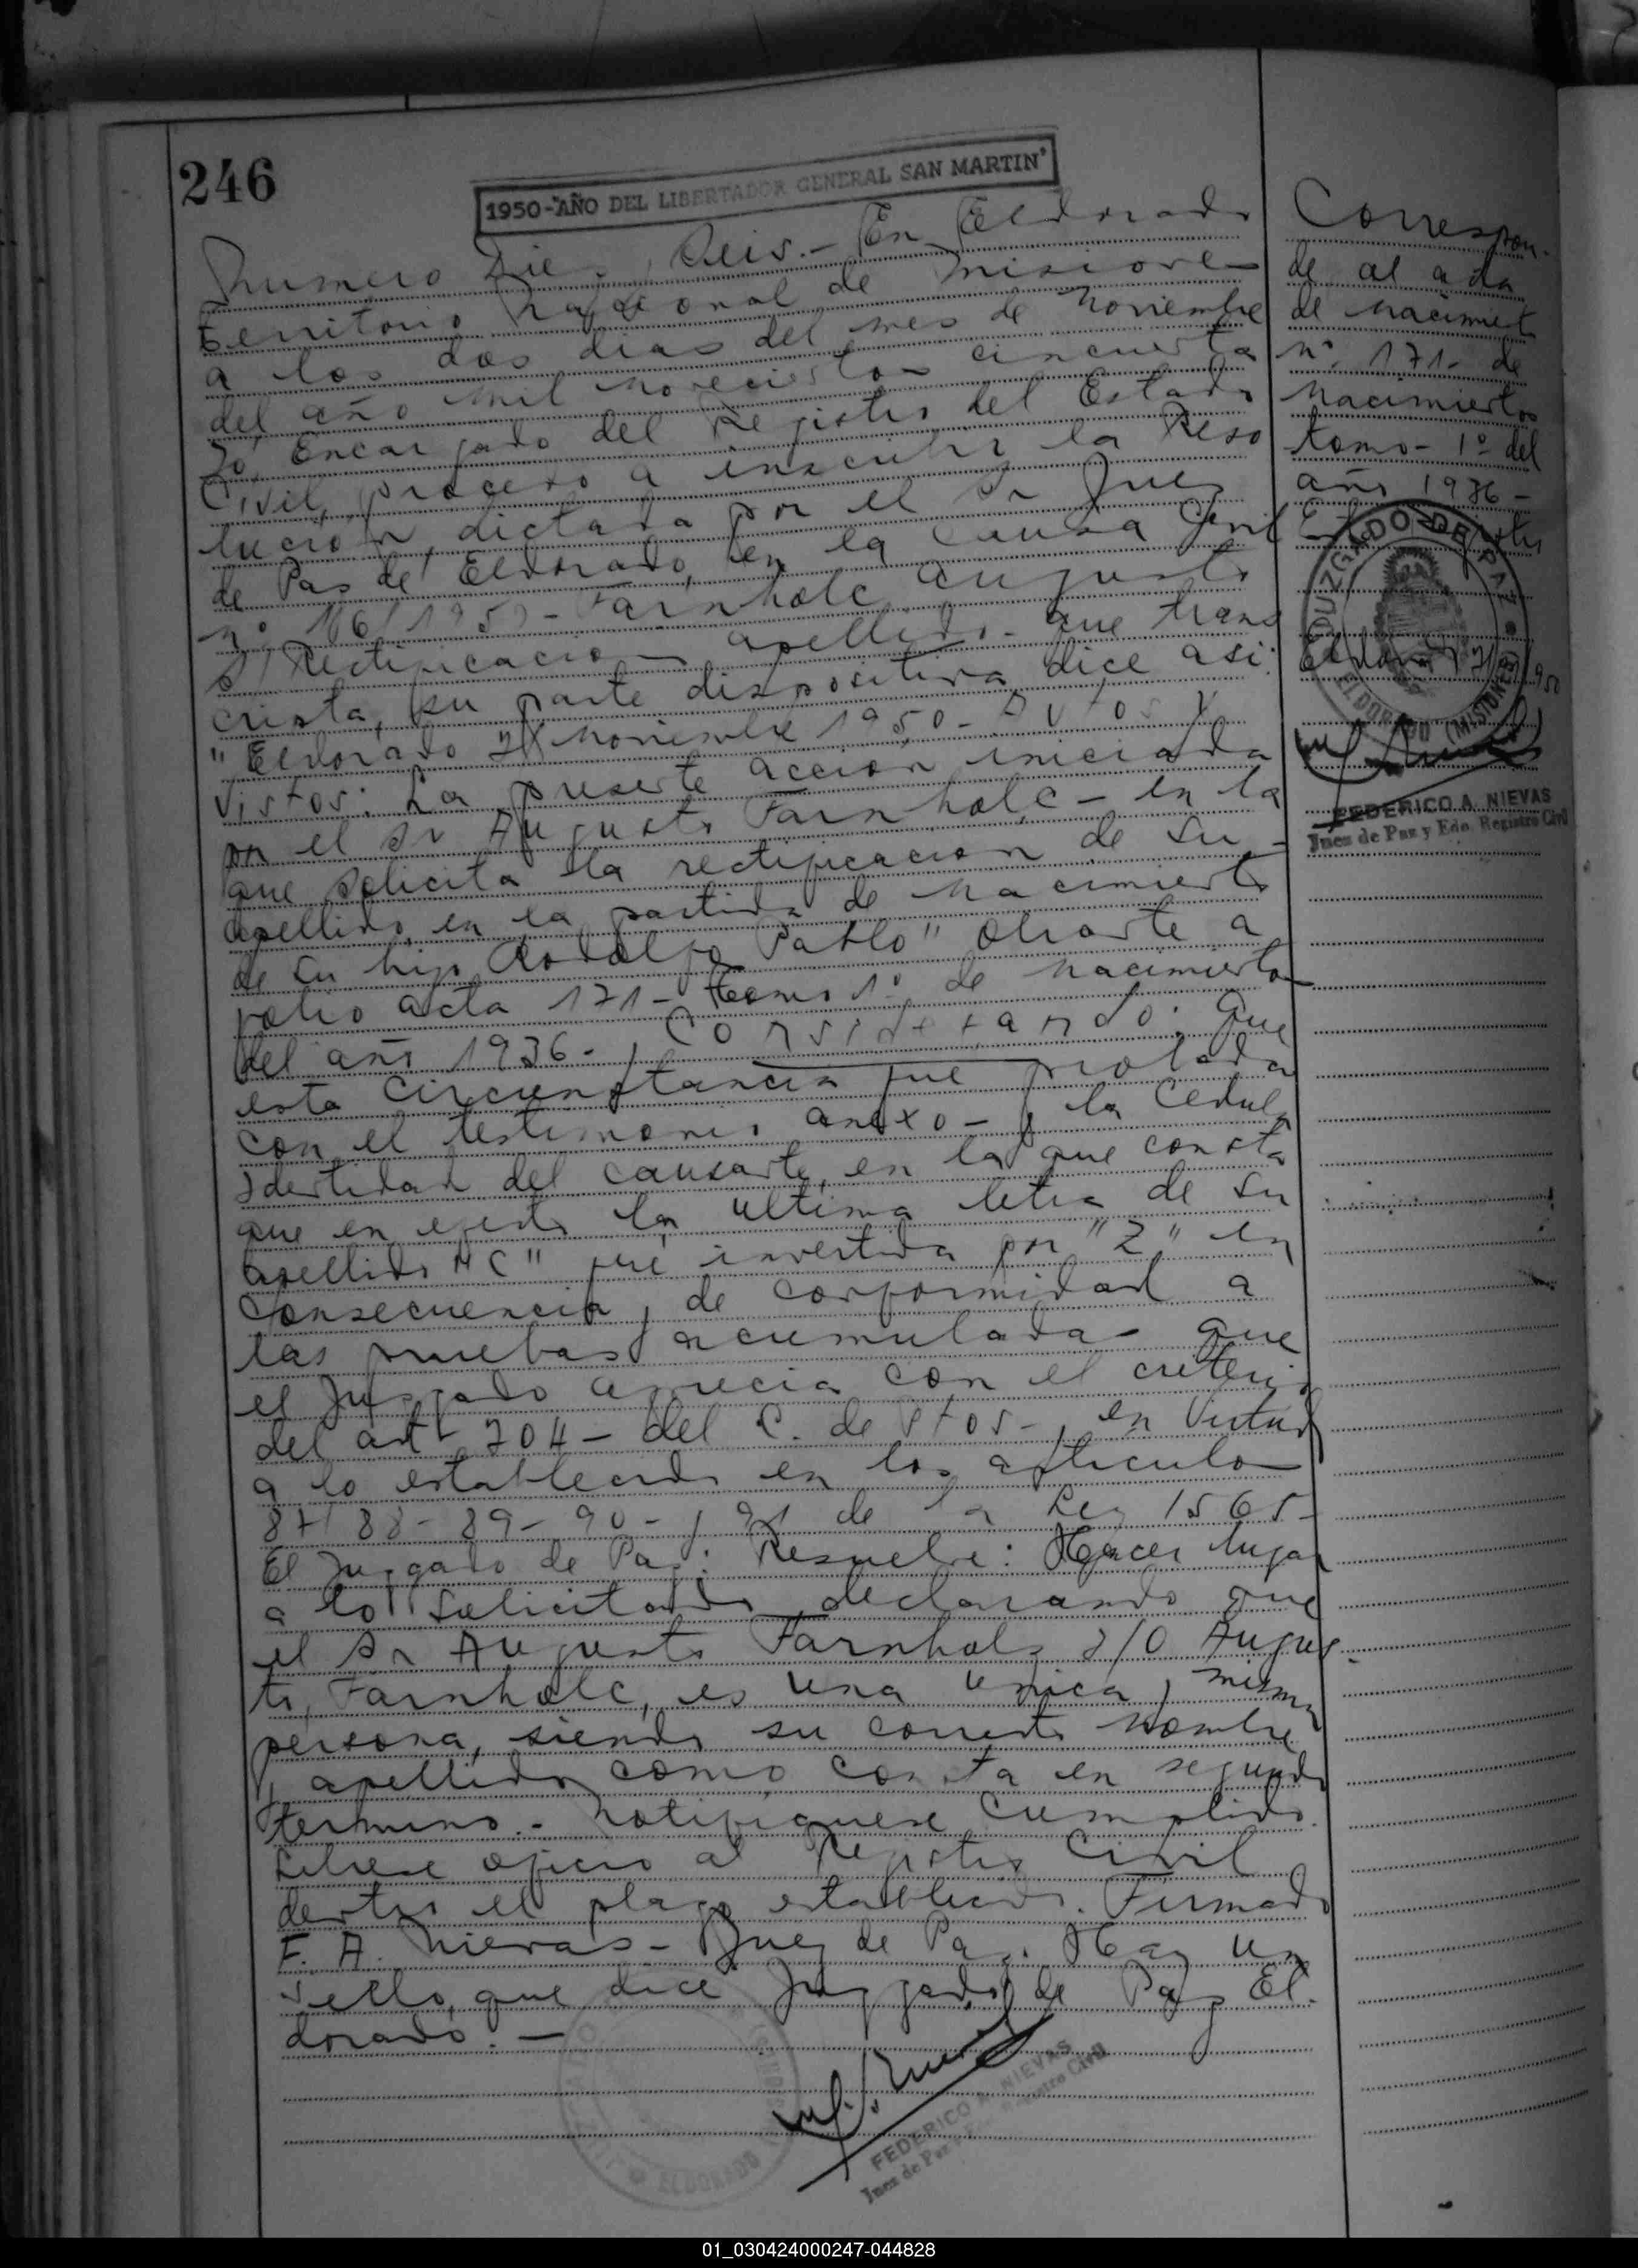 246
1950-"AÑO DEL LIBERTADOR GENERAL SAN MARTIN"
Numero Diez y Seis.- En Eldorado
territorio Nacional de Misiones
a los dos dias del mes de Noviembre
del año mil novecientos cincuenta
Yo, Encargado del Registro del Estado
Civil, procedo a inscribir la Reso
lución, dictada por el Sr Juez
de Paz de Eldorado, en la causa Civil
n° 116/1950- Farnholc Augusto
s/ Rectificacion apellido- que trans
cripta, su parte dispositiva dice asi:
"Eldorado 2 Noviembre 1950- Autos y
Vistos: La presente accion iniciada
por el Sr Augusto Farnholc- en la
que solicita la rectificacion de su
apellido en la partida de nacimiento
de su hijo Rodolfo Pablo" obrante a
folio acta 171- tomo 1° de nacimientos
del año 1936- y Considerando: Que
esta circunstancia fue probada
con el testimonio anexo- y la Cedula
Identidad del causante, en la que consta
que en efecto la ultima letra de su
apellido "C" fué invertida por "Z", en
consecuencia, de conformidad a
las pruebas acumuladas que
el Juzgado aprecia con el criterio
del art- 704- del C. de Ptos-, en Virtud
a lo establecido en los articulos
87/88-89-90- y 91 de la Ley 1565-
El Juzgado de Paz: Resuelve: Hacer lugar
a lo solicitado declarando que
el Sr Augusto Farnholz y/o Augus-
to, Farnholc, es una unica y misma
persona, siendo su correcto nombre
y apellido como consta en segundo
termino.- Notifiquese Cumplido
Librese oficio al Registro Civil
dentro el plazo establecido. Firmado
F. A. Nievas- Juez de Paz. Hay un
sello, que dice Juzgado de Paz El-
dorado.-
FEDERICO A. NIEVAS
Juez de Paz y Edo. Registro Civil
Correspon-
de al acta
de nacimiet
n° 171- de
Nacimientos
tomo- 1° del
año 1936-
JUZGADO DE PAZ
ELDORADO (MISIONES)
FEDERICO A. NIEVAS
Juez de Paz y Edo. Registro Civil
01_030424000247-044828